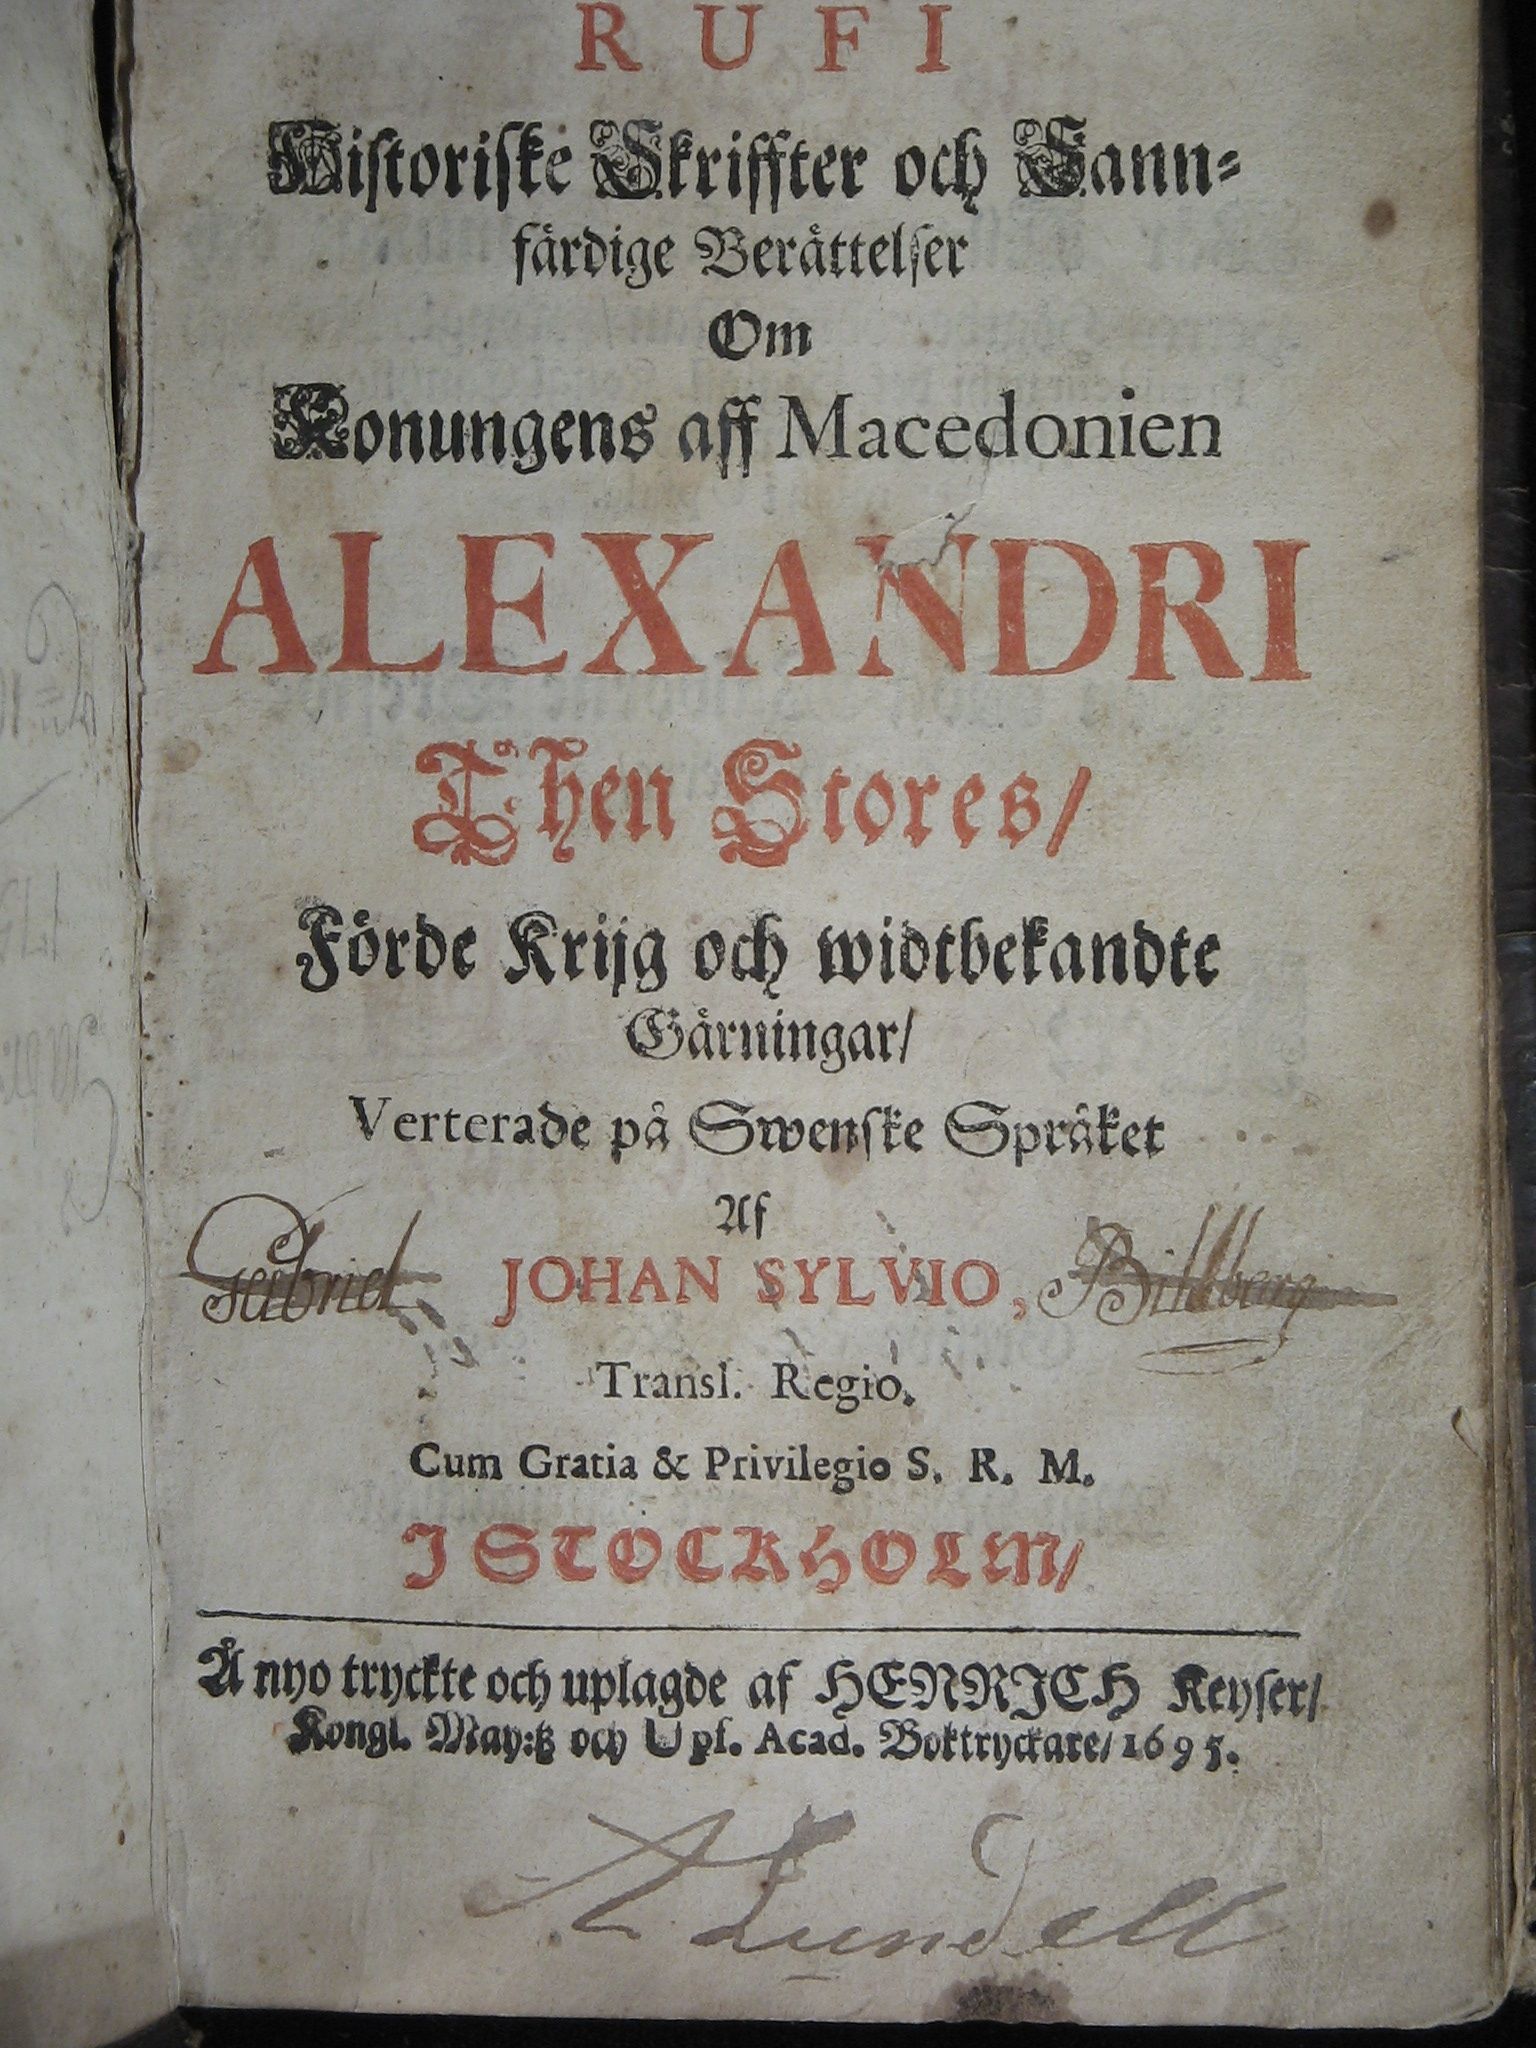 RUFI
Historiske Skriffter och Sann-
färdige Berättelser
Om
Konungens aff Macedonien
ALEXANDRI
Then Stores/
Förde Krijg och widtbekandte
Gärningar/
Verterade på Swenske Språket
Af
Gabriel JOHAN SYLVIO, Billberg
Transl. Regio.
Cum Gratia & Privilegio S. R. M.
I STOCKHOLM/
Å nyo tryckte och uplagde af HENRICH Keyser/
Kongl. May:tz och Upf. Acad. Boktryckare/ 1695.
A Lundell